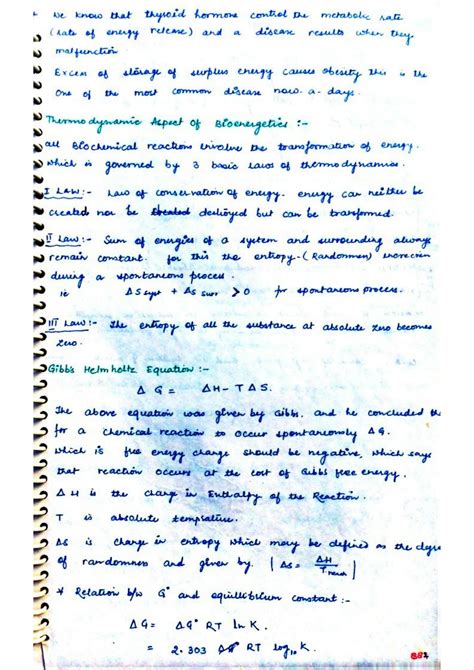 We know that thyroid hormone control the metabolic rate
(rate of energy release) and a disease results when they
malfunction
Excess of storage of surplus energy causes obesity this is the
One of the most common disease now-a-days.
Thermodynamic Aspect of Bioenergetics :-
all Biochemical reactions involve the transformation of energy.
which is governed by 3 basic Laws of thermodynamics.
I Law:- Law of conservation of energy. energy can neither be
created nor be destroyed but can be transformed.
II Law:- Sum of energies of a system and surrounding always
remain constant. for this the entropy-(Randomness)
during a spontaneous process.
ie ΔS syst + ΔS surr > 0 for spontaneous process.
III Law:- The entropy of all the substance at absolute zero becomes
zero.
Gibb's Helmholtz Equation :-
Δ G = ΔH - TΔS.
The above equation was given by Gibbs. and he concluded th
for a chemical reaction to occur spontaneously ΔG.
which is free energy change should be negative, which says
that reaction occurs at the cost of Gibbs free energy.
Δ H is the change in Enthalpy of the Reaction.
T is absolute temprature.
ΔS is change in entropy which may be defined as the
of randomness and given by. | ΔS = ΔH / T |
* Relation b/w G° and equilibrium constant :-
ΔG = RT ln K.
= 2.303 RT log₁₀ K.